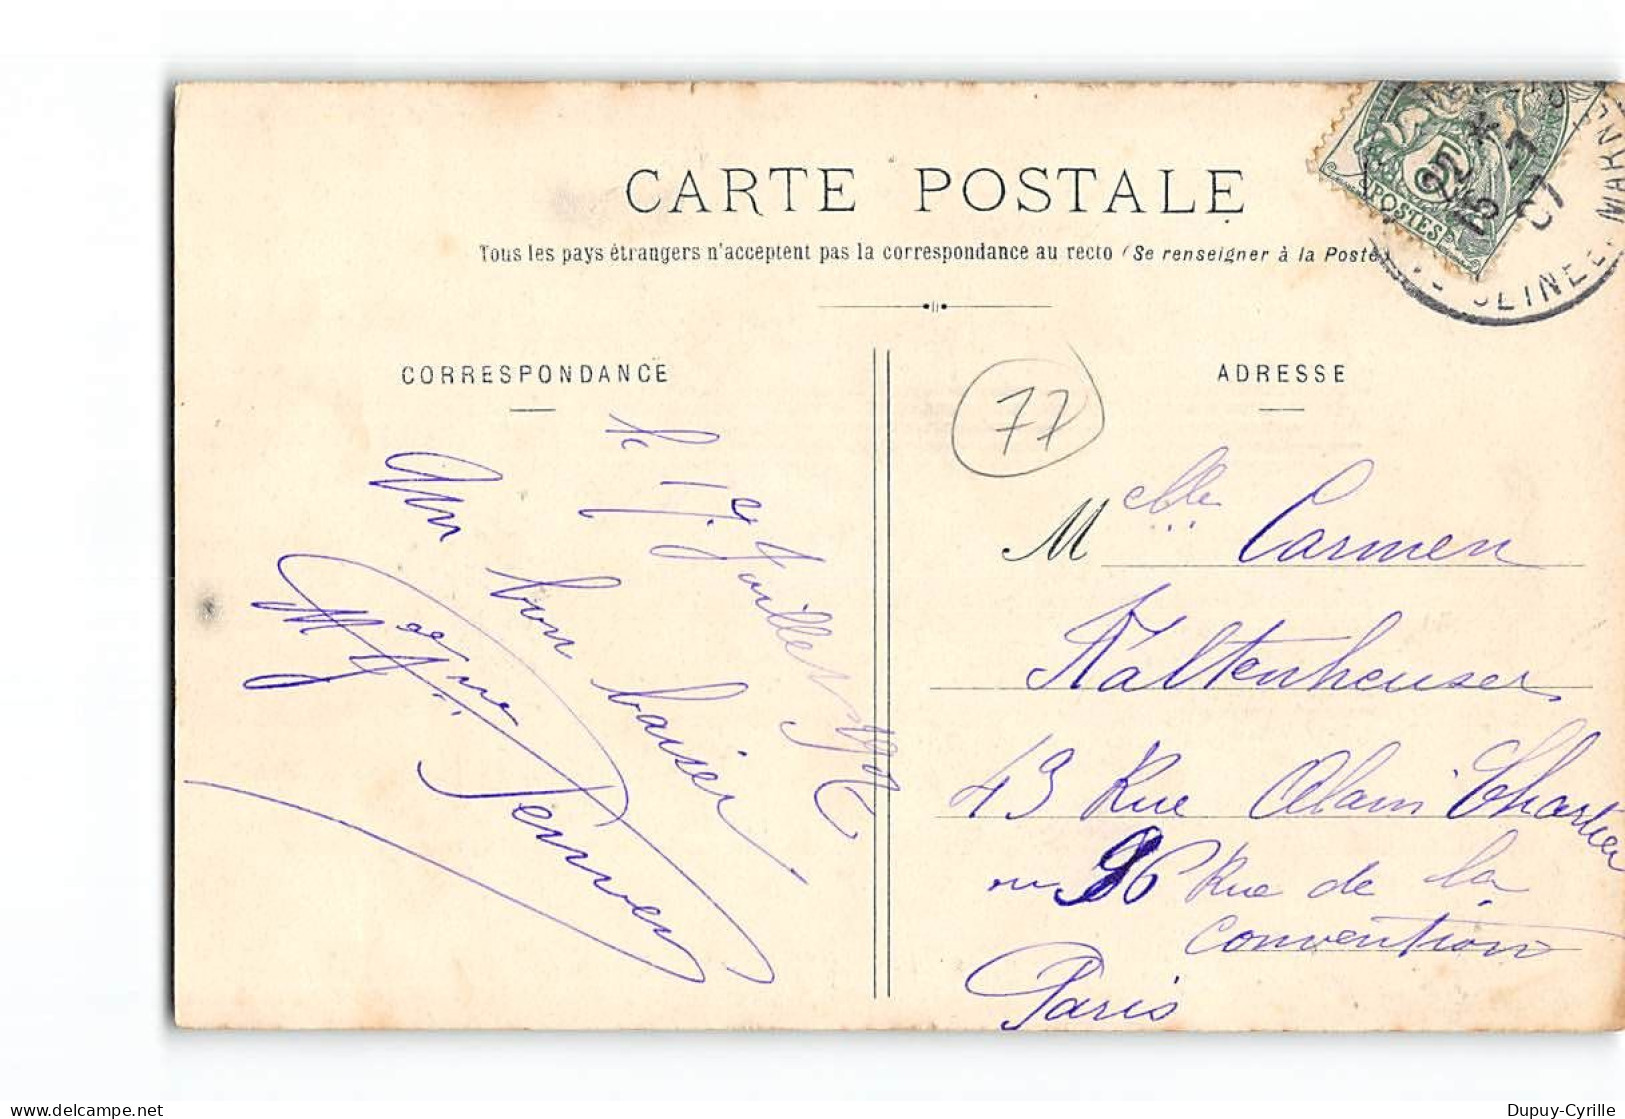 CARTE POSTALE
Tous les pays étrangers n'acceptent pas la correspondance au recto (Se renseigner à la Poste)
5
POSTES
07
SEINE E MARNE
CORRESPONDANCE
ADRESSE
77
le 1er Juillet 1907
Un
bon baiser
Melle Carmen
Kaltenheuser
43 Rue Alain Chartier
ou 96 Rue de la
Convention
Paris
Dupuy-Cyrille